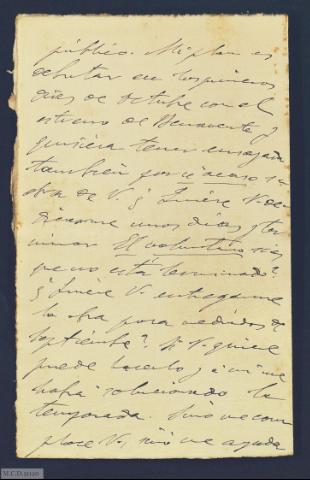 público. Mi plan es
debutar en los primeros
días de Octubre con el
estreno de Benavente y
quisiera tener ensayada
también por si acaso la
obra de V. ¿Quiere V. de-
dicarme unos días y ter-
minar El voluntino si es
que no está terminado?
¿Quiere V. entregarme
la obra para mediados de
septiembre? Si V. quiere
puede hacerlo y a mi me
habrá solucionado la
temporada. Si no me com-
place V., si no me ayuda
M.C.D.2020